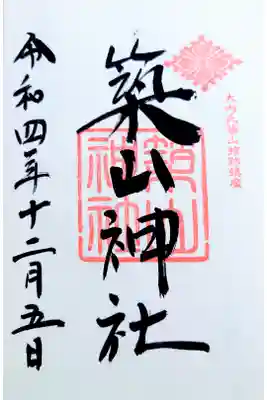 大内氏築山館跡鎮座
築山神社
築山神社
令和四年十二月五日